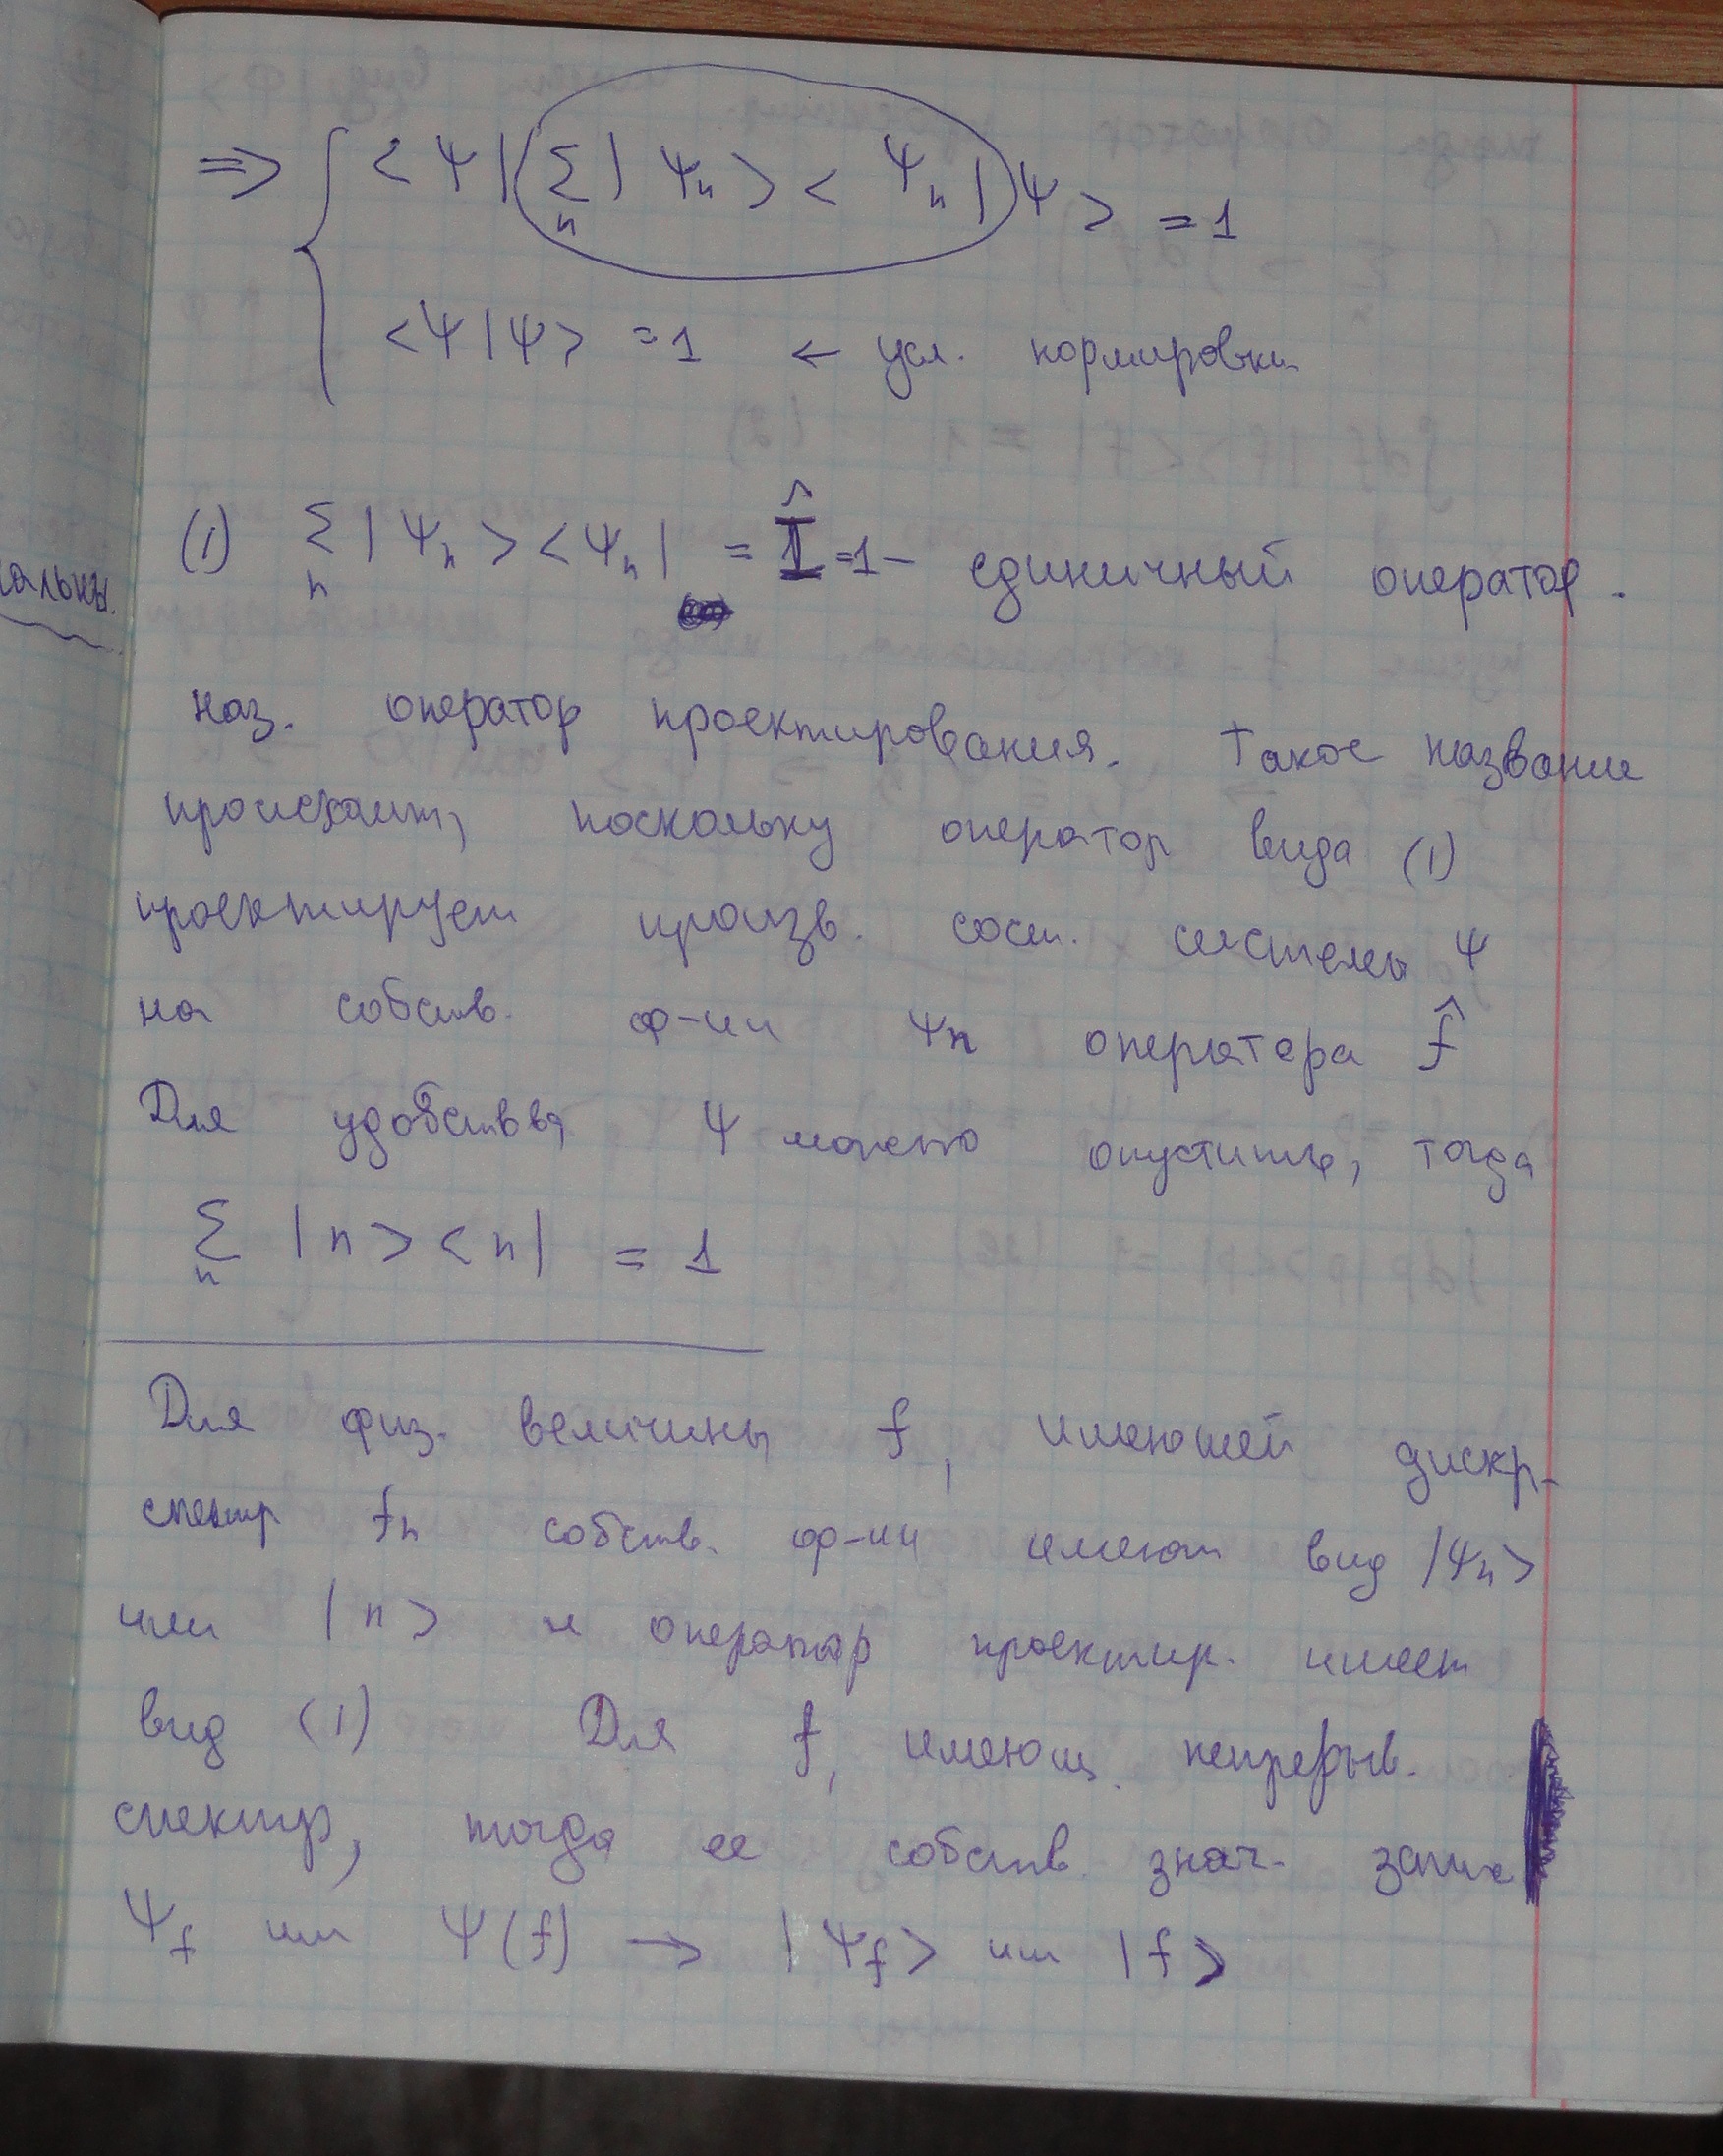 => { <Ψ|(Σ_n |Ψ_n><Ψ_n|)Ψ> = 1
<Ψ|Ψ> = 1 ← усл. нормировки
(1) Σ_n |Ψ_n><Ψ_n| = Î = 1 – единичный оператор.
альны.
наз. оператор проектирования. Такое название
происходит, поскольку оператор вида (1)
проектирует произв. сост. системы Ψ
на собств. ф-ии Ψn оператора f̂
Для удобства, Ψ можно опустить, тогда
Σ_n |n><n| = 1
Для физ. величины f, имеющей дискр.
спектр fn собств. ф-ии имеют вид |Ψn>
или |n> и оператор проектир. имеет
вид (1) Для f, имеющ. непрерыв.
спектр, тогда ее собств. знач.
Ψ_f или Ψ(f) → |Ψ_f> или |f>